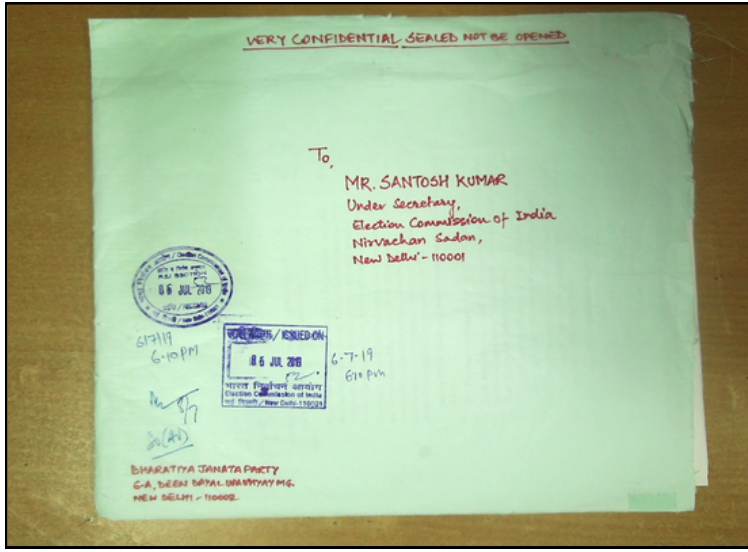 VERY CONFIDENTIAL SEALED NOT BE OPENED
To,
MR. SANTOSH KUMAR
Under Secretary,
Election Commission of India
Nirvachan Sadan,
New Delhi - 110001
/ Election Commission of India
R&I SECTION
06 JUL 2019
6/7/19
6-10 PM
/ ISSUED ON
06 JUL 2019
भारत निर्वाचन आयोग
Election Commission of India
नई दिल्ली / New Delhi-110001
6-7-19
610 pm
BHARATIYA JANATA PARTY
6-A, DEEN DAYAL UPADHYAY MG.
NEW DELHI - 110002